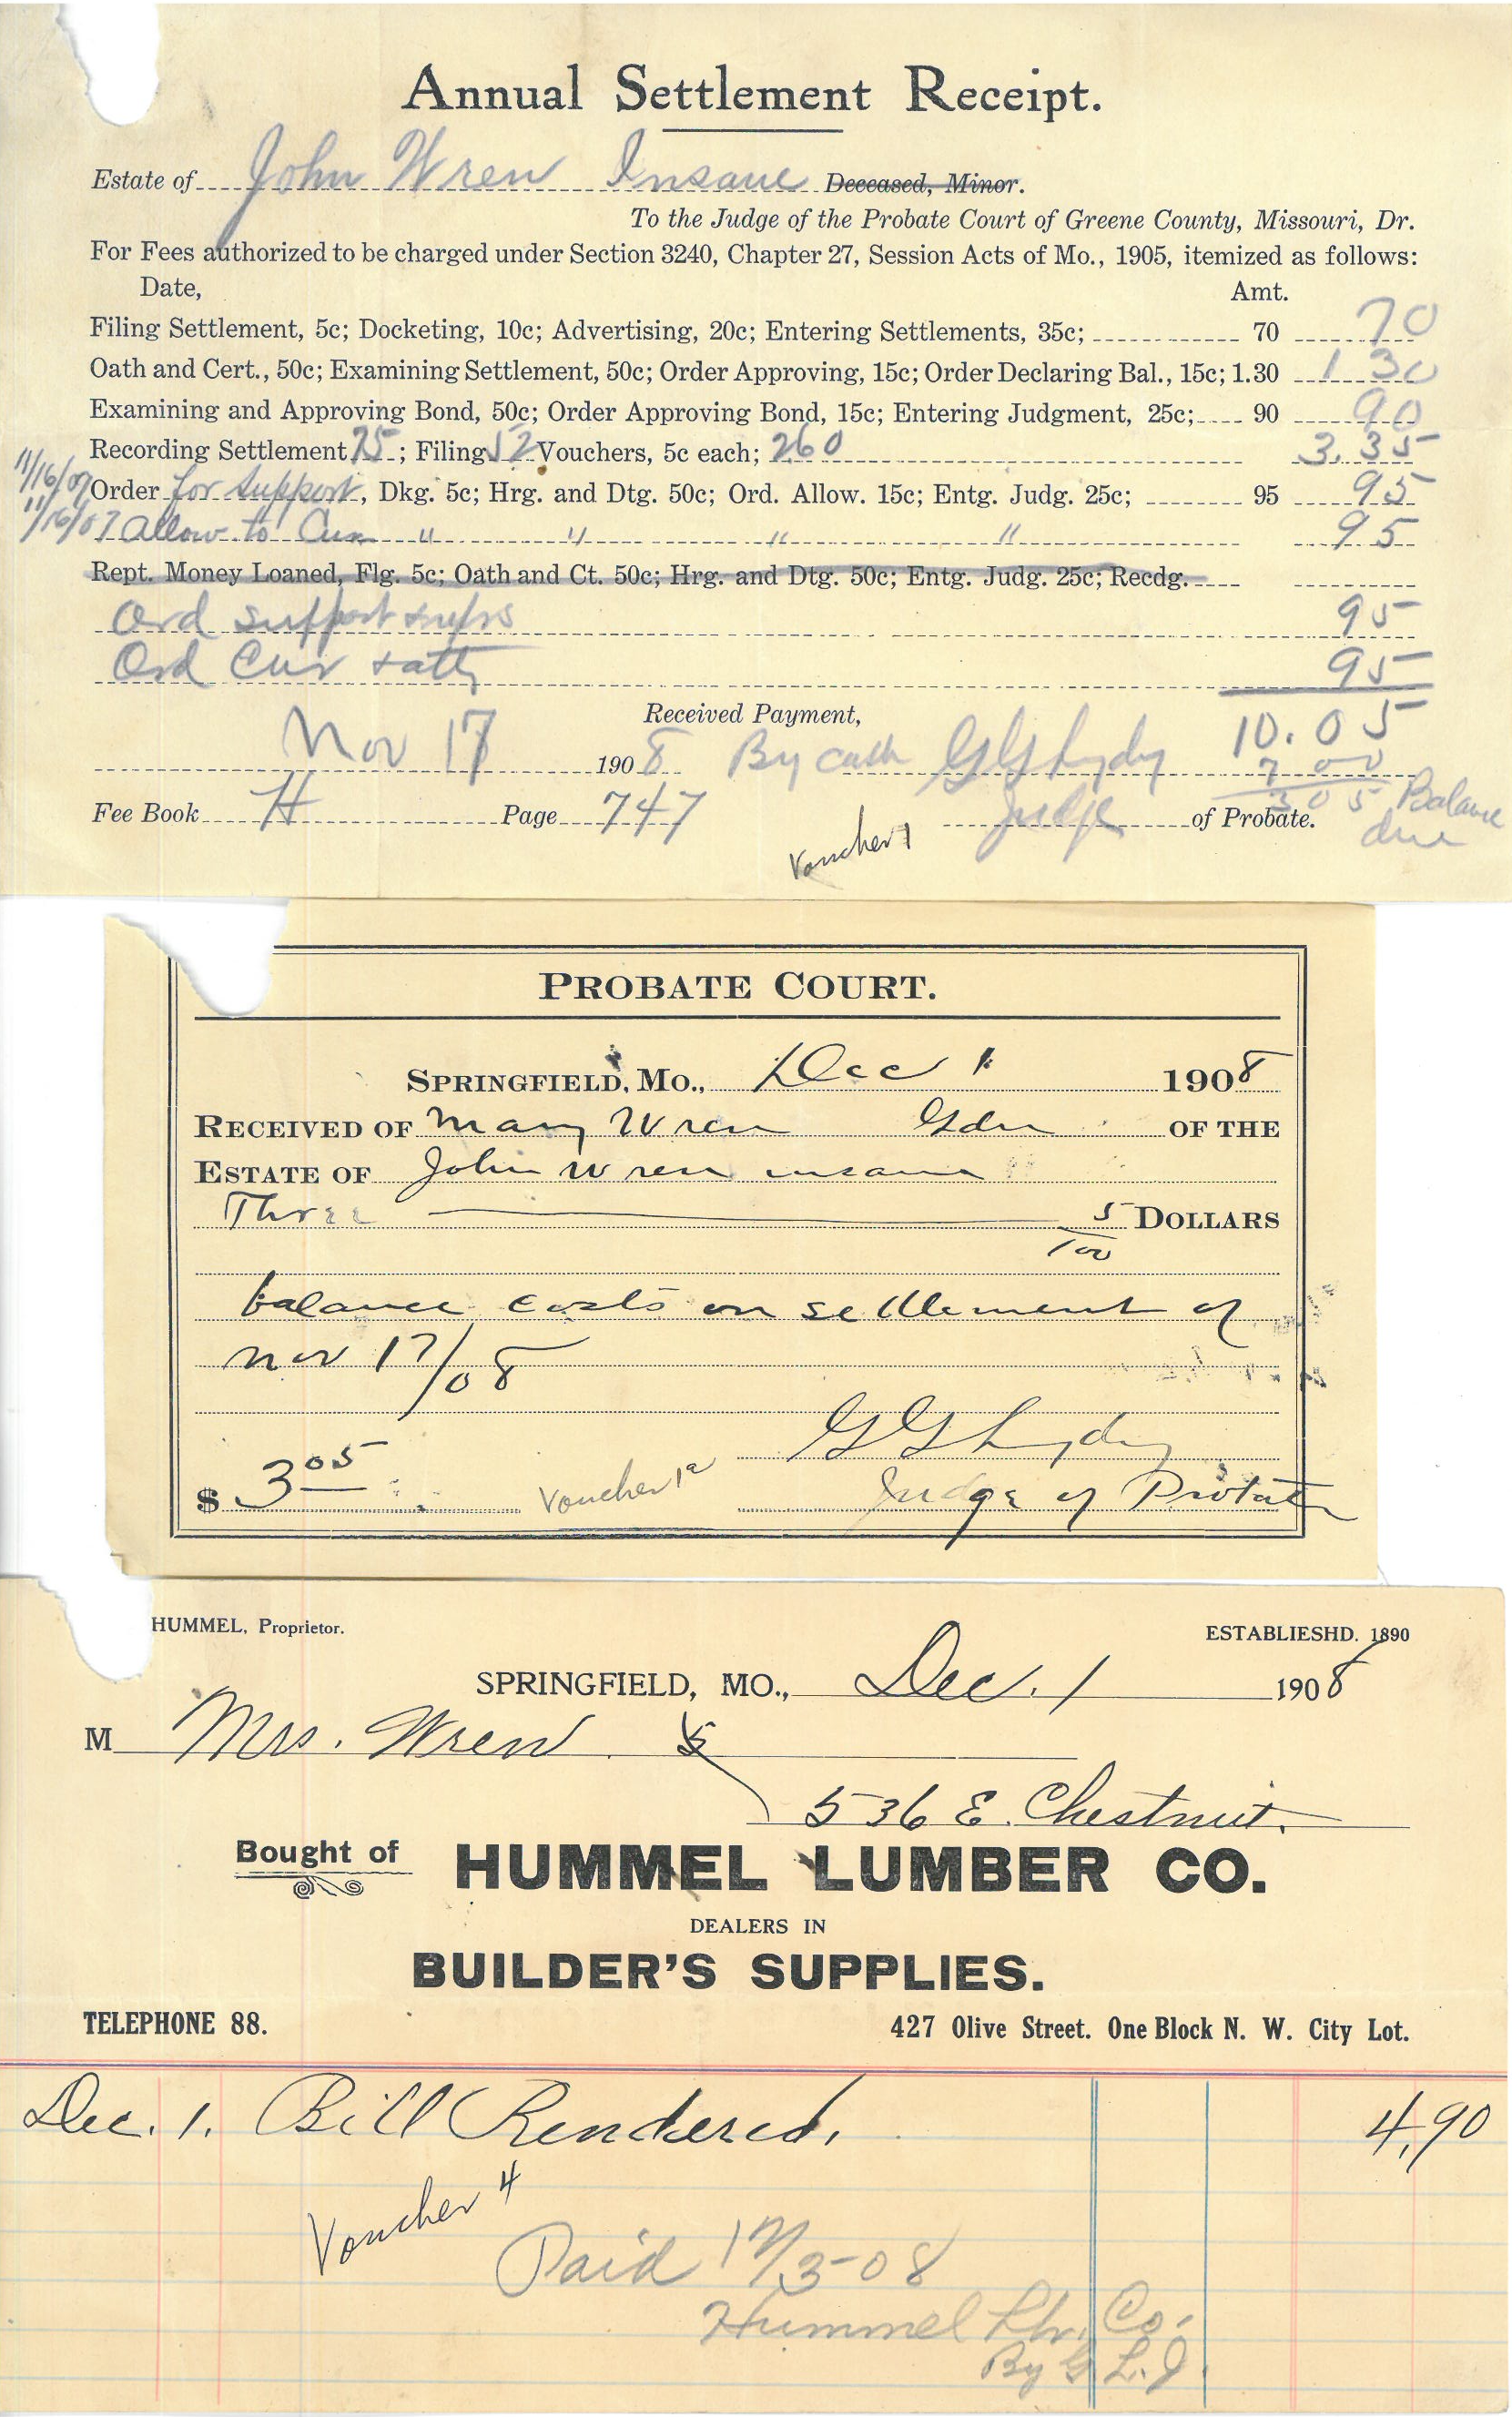 Annual Settlement Receipt.
Estate of John Wren Insane Deceased, Minor.
To the Judge of the Probate Court of Greene County, Missouri, Dr.
For Fees authorized to be charged under Section 3240, Chapter 27, Session Acts of Mo., 1905, itemized as follows:
Date, Amt.
Filing Settlement, 5c; Docketing, 10c; Advertising, 20c; Entering Settlements, 35c; 70 70
Oath and Cert., 50c; Examining Settlement, 50c; Order Approving, 15c; Order Declaring Bal., 15c; 1.30 1 30
Examining and Approving Bond, 50c; Order Approving Bond, 15c; Entering Judgment, 25c; 90 90
Recording Settlement 75; Filing 52 Vouchers, 5c each; 260 3.35
11/16/07 Order for support, Dkg. 5c; Hrg. and Dtg. 50c; Ord. Allow. 15c; Entg. Judg. 25c; 95 95
11/16/07 Allow to Cur " " " " 95
Rept. Money Loaned, Flg. 5c; Oath and Ct. 50c; Hrg. and Dtg. 50c; Entg. Judg. 25c; Recdg.
Ord support 95
Ord Cur + atty 95
Received Payment, 10.05
Nov 17 1908 By cash G G Lydy 7 00
Fee Book H Page 747 Judge of Probate. 3 05 Balance
due
Voucher 1
PROBATE COURT.
SPRINGFIELD, MO., Dec 1 1908
RECEIVED OF Mary Wren Gdn OF THE
ESTATE OF John Wren insane
Three 5/100 DOLLARS
balance costs on settlement of
Nov 17/08
G G Lydy
$ 3 05 Voucher 1a Judge of Probate
HUMMEL, Proprietor. ESTABLIESHD. 1890
SPRINGFIELD, MO., Dec. 1 1908
M Mrs. Wren
536 E. Chestnut.
Bought of HUMMEL LUMBER CO.
DEALERS IN
BUILDER'S SUPPLIES.
TELEPHONE 88. 427 Olive Street. One Block N. W. City Lot.
Dec. 1. Bill Rendered. 4.90
Voucher 4
Paid 12/3-08
Hummel Lbr. Co.
By G. L. J.